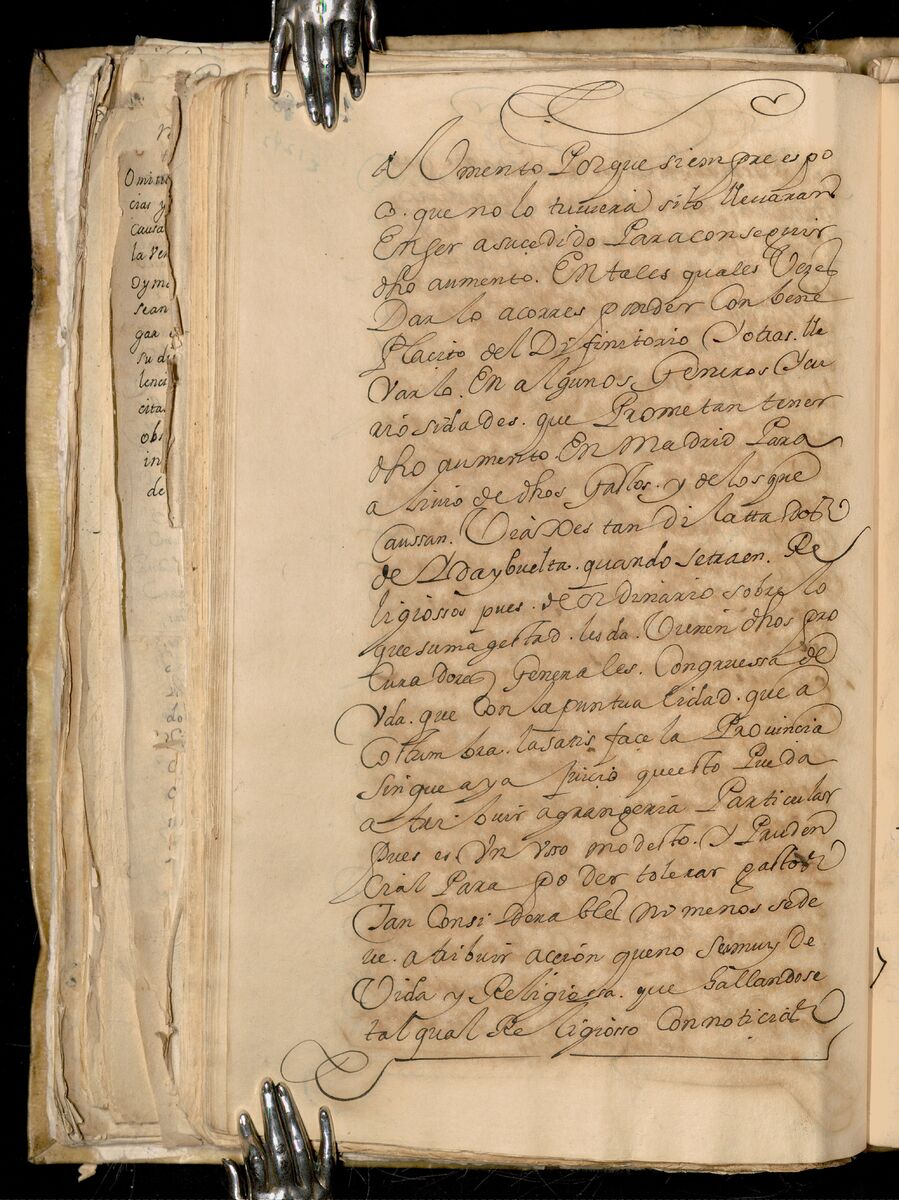 Omitti
cias y
Causa
la Ven
Oyme
sean
gar
su di
lenci
cita
obs
in
de
almento Porque siempre es po
co. que no lo tuviera sito llevaran
En ser a sucedido Para conseguir
dho aumento. En tales quales Vezes
Darlo a corres ponder Con bene
Placito del Dyfinitorio Y otras. lle
Varlo. En algunos Generos Y cu
rio sida des. que Prometan tener
dho aumento. En Madrid Para
alivio de dhos Gastos. y de los que
Caussan. Viaxes tan di latta dos
de Yda y buelta. quando se traen. Re
ligiossos pues. de ordinario sobre lo
que su magestad. les da. Vienen dhos pro
Curadores Generales. Con gruessa de
Vda. que Con la puntualidad. que a
Costumbra. la satis face la Provincia
Sin que aya Juicio que esto Pueda
atribuir a grangeria Particular
Pues es Vn Vso modesto. y Pruden
Cial Para po Der tolerar gastos
Tan Consi Dera bles ni menos se de
ve. atribuir acción que no sea muy de
Vida y Religiossa. que hallandose
tal qual Re ligiosso Con noticias